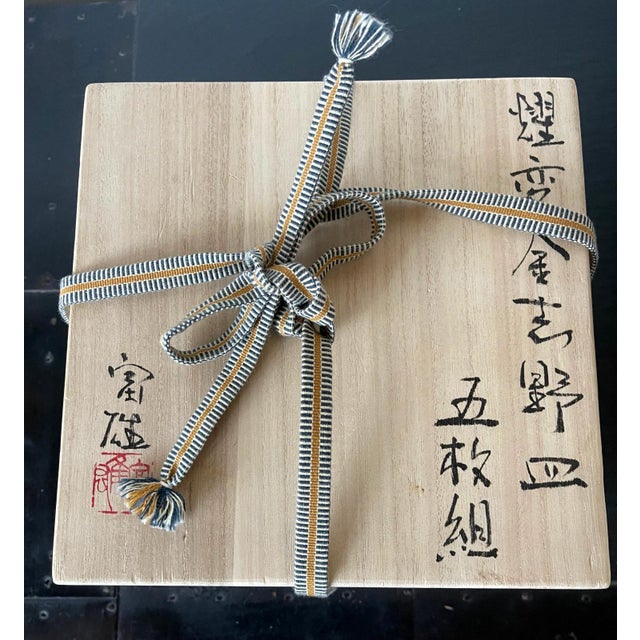 燿変金志野皿
五枚組
富雄